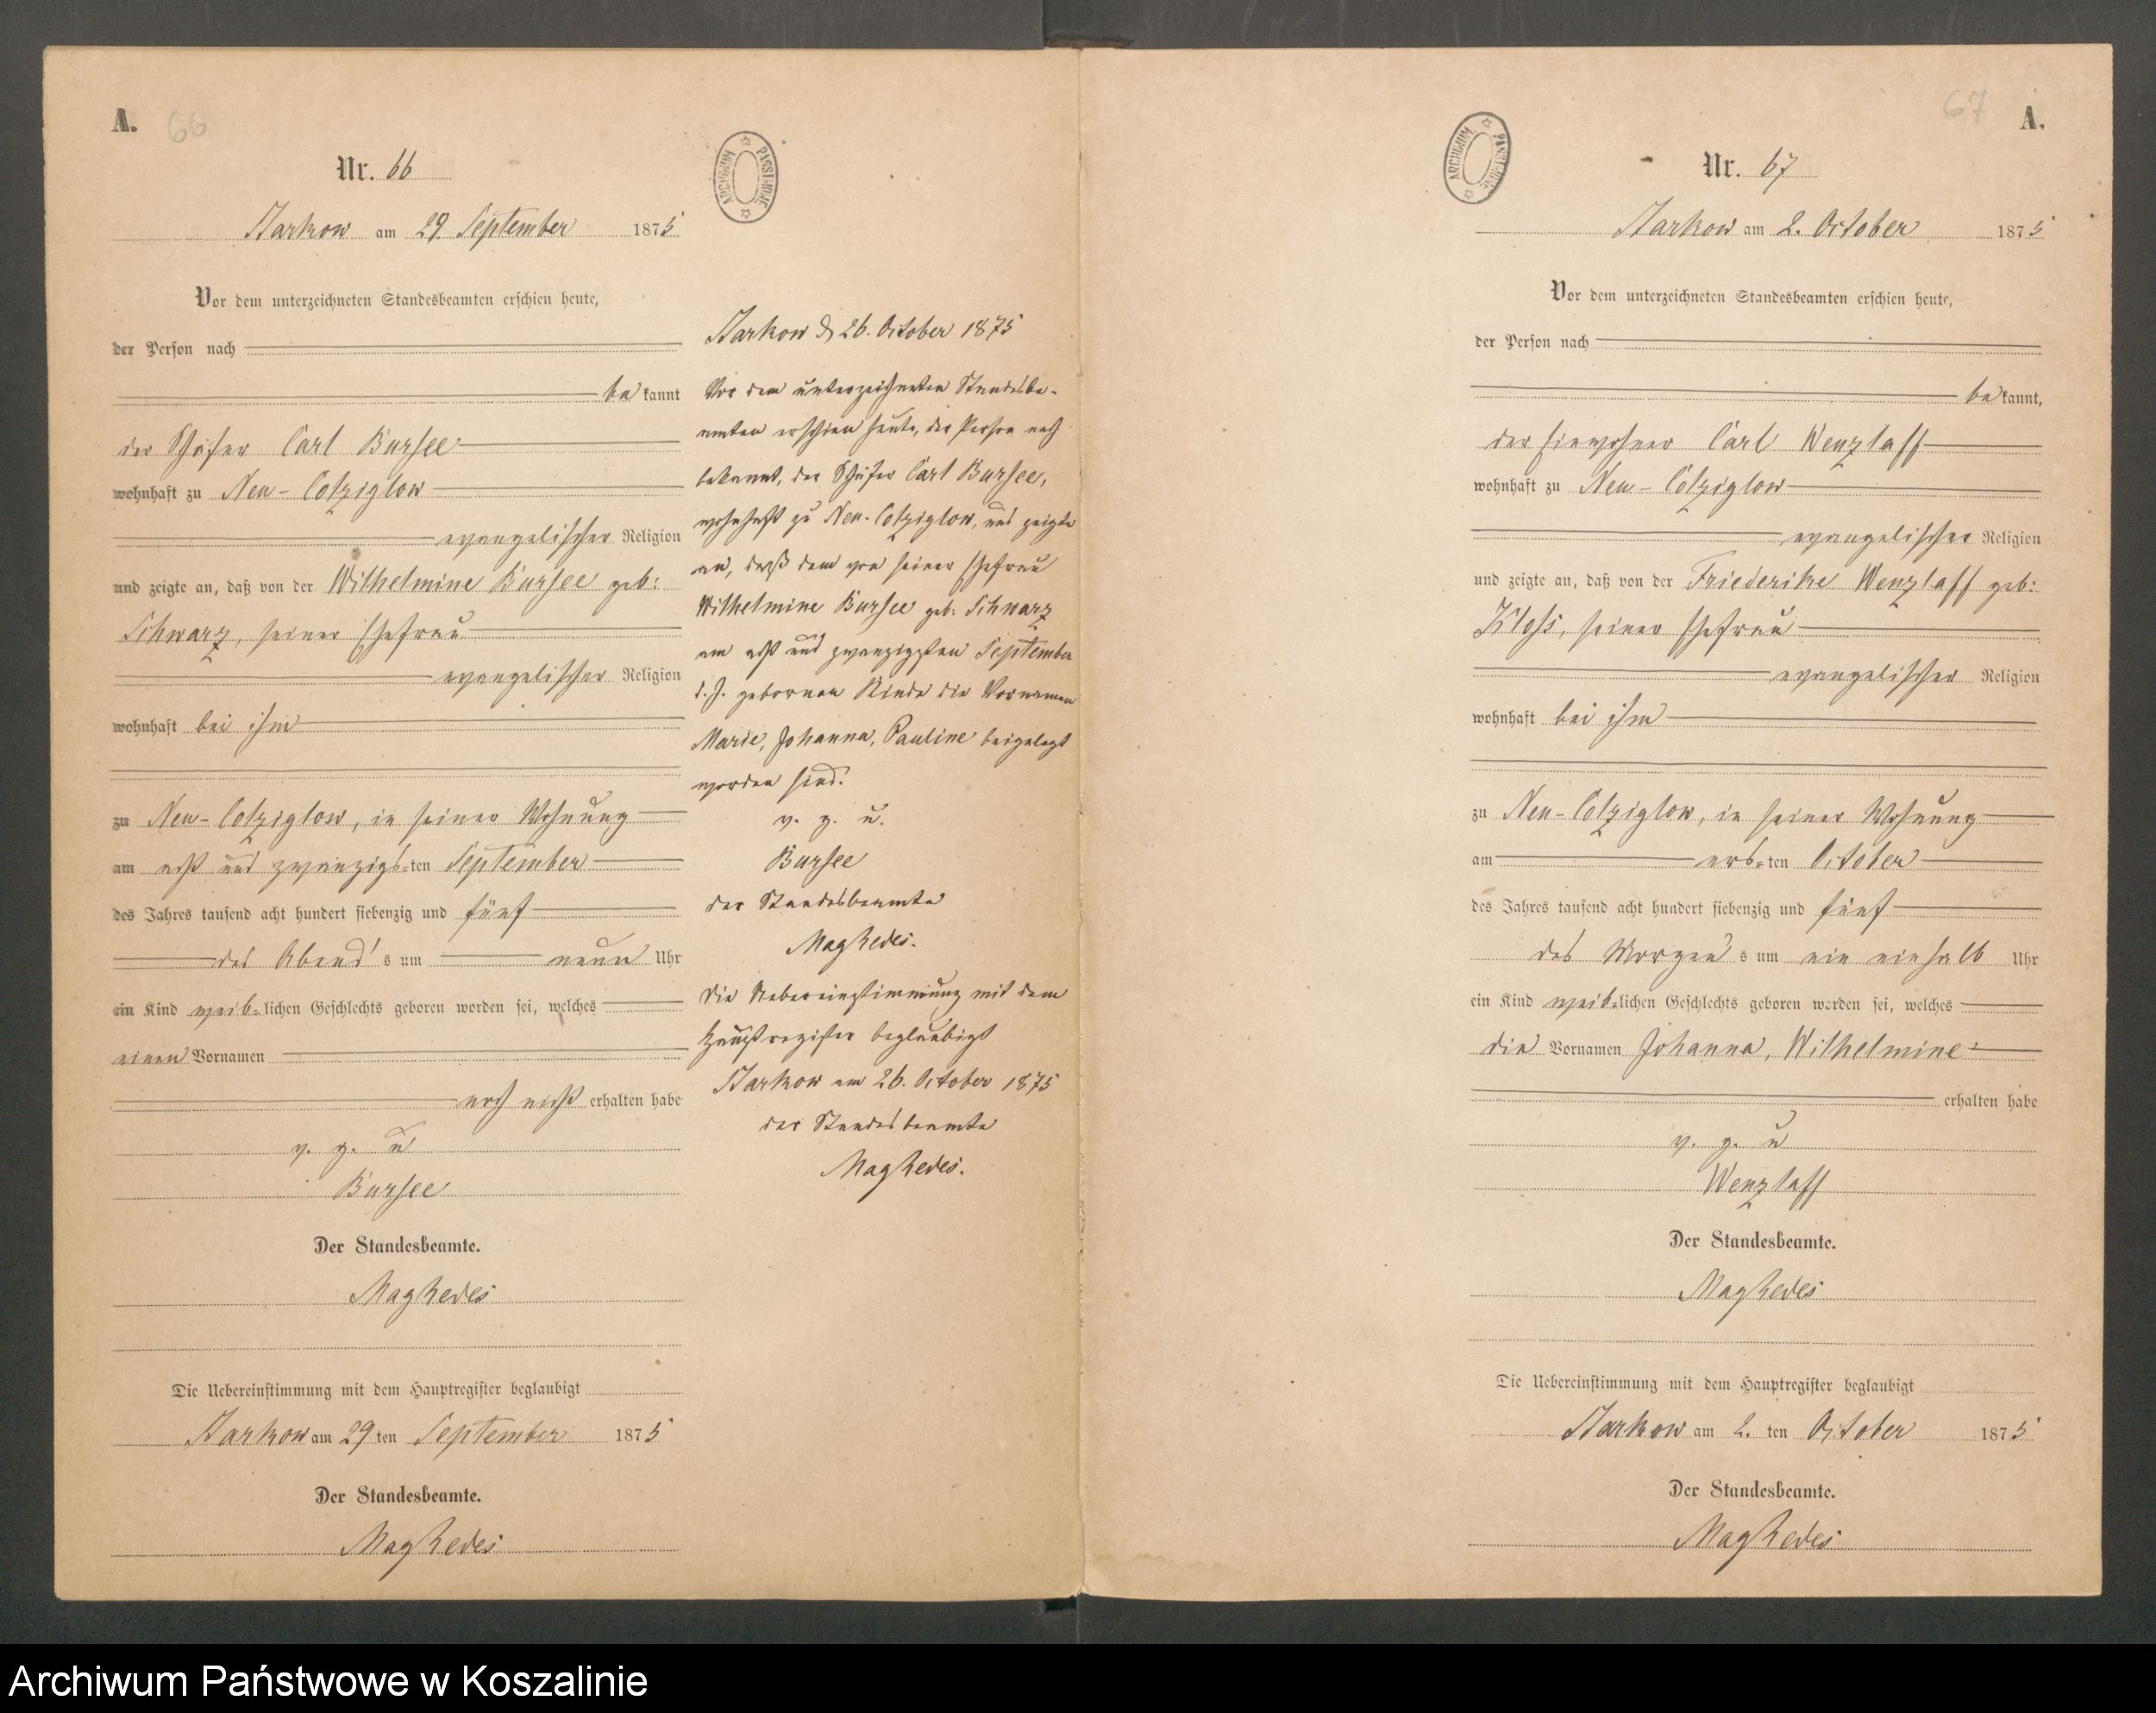 A. 66
Nr. 66
Starkow am 29. September 1875
Vor dem unterzeichneten Standesbeamten erschien heute,
der Person nach
bekannt
der Schäfer Carl Bursee
wohnhaft zu Neu-Colziglow
evangelischer Religion
und zeigte an, daß von der Wilhelmine Bursee geb:
Schwarz, seiner Ehefrau
evangelischer Religion
wohnhaft bei ihm
zu Neu-Colziglow, in seiner Wohnung
am acht und zwanzigs-ten September
des Jahres tausend acht hundert siebenzig und fünf
des Abend's um neun Uhr
ein Kind weib-lichen Geschlechts geboren worden sei, welches
einen Vornamen
noch nicht erhalten habe
v. g. u
Bursee
Der Standesbeamte.
Die Uebereinstimmung mit dem Hauptregister beglaubigt
Starkow am 29 ten September 1875
Der Standesbeamte.
ARCHIWUM PAŃSTWOWE
Starkow d. 26. October 1875
Vor dem unterzeichneten Standesbe-
amten erschien heute, der Person nach
bekannt, der Schäfer Carl Bursee,
wohnhaft zu Neu-Colziglow, und zeigte
an, daß dem von seiner Ehefrau
Wilhelmine Bursee geb: Schwarz
am acht und zwanzigsten September
d. J. gebornen Kinde die Vornamen
Marie, Johanna, Pauline beigelegt
worden sind.
v. g. u.
Bursee
der Standesbeamte
Die Uebereinstimmung mit dem
Hauptregister beglaubigt
Starkow am 26. October 1875
der Standesbeamte
67 A.
ARCHIWUM PAŃSTWOWE
Nr. 67
Starkow am 2. October 1875
Vor dem unterzeichneten Standesbeamten erschien heute,
der Person nach
bekannt,
der Einwohner Carl Wenzlaff
wohnhaft zu Neu-Colziglow
evangelischer Religion
und zeigte an, daß von der Friederike Wenzlaff geb:
Kloss, seiner Ehefrau
evangelischer Religion
wohnhaft bei ihm
zu Neu-Colziglow, in seiner Wohnung
am ers-ten October
des Jahres tausend acht hundert siebenzig und fünf
des Morgens um ein einhalb Uhr
ein Kind weib-lichen Geschlechts geboren worden sei, welches
die Vornamen Johanna, Wilhelmine
erhalten habe
v. g. u
Wenzlaff
Der Standesbeamte.
Die Uebereinstimmung mit dem Hauptregister beglaubigt
Starkow am 2. ten October 1875
Der Standesbeamte.
Archiwum Państwowe w Koszalinie